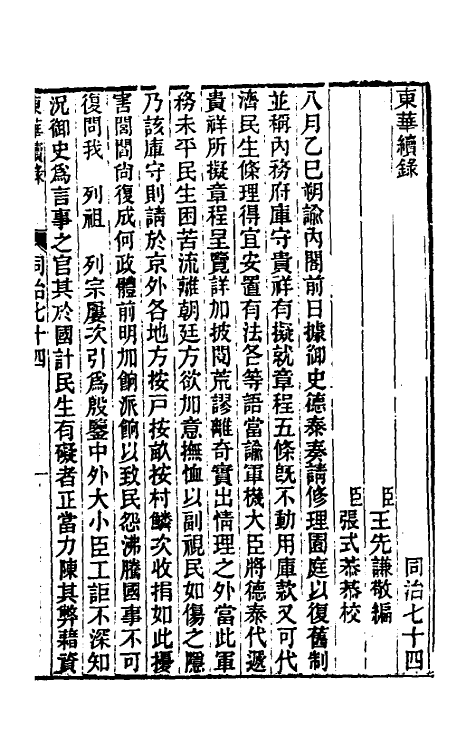 東華續錄　同治七十四
臣王先謙敬編
臣張式恭恭校
八月乙巳朔諭內閣前日據御史德泰奏請修理園庭以復舊制
並稱內務府庫守貴祥有擬就章程五條旣不動用庫款又可代
濟民生條理得宜安置有法各等語當諭軍機大臣將德泰代遞
貴祥所擬章程呈覽詳加披閱荒謬離奇實出情理之外當此軍
務未平民生困苦流離朝廷方欲加意撫恤以副視民如傷之隱
乃該庫守則請於京外各地方按戶按畝按村鱗次收捐如此擾
害閭閻尚復成何政體前明加餉派餉以致民怨沸騰國事不可
復問我　列祖　列宗屢次引爲殷鑒中外大小臣工詎不深知
況御史爲言事之官其於國計民生有礙者正當力陳其弊藉資
東華續錄　同治七十四　一